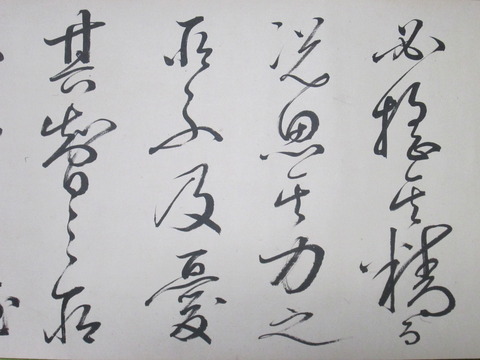 必搖其精而
況思其力之
所不及憂
其智之所